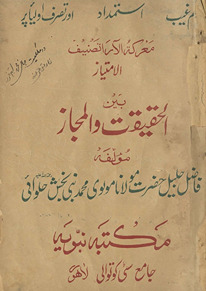 م غیب استمداد اور تصرف اولیأ پر
معرکۃ الآرا تصنیف
الامتیاز
بین
الحقیقت والمجاز
مؤلفہ
فاضل جلیل حضرت مولانا مولوی محمد نبی بخش حلوائی
مکتبہ نبویہ
جامع مسجد کوتوالی لاہور